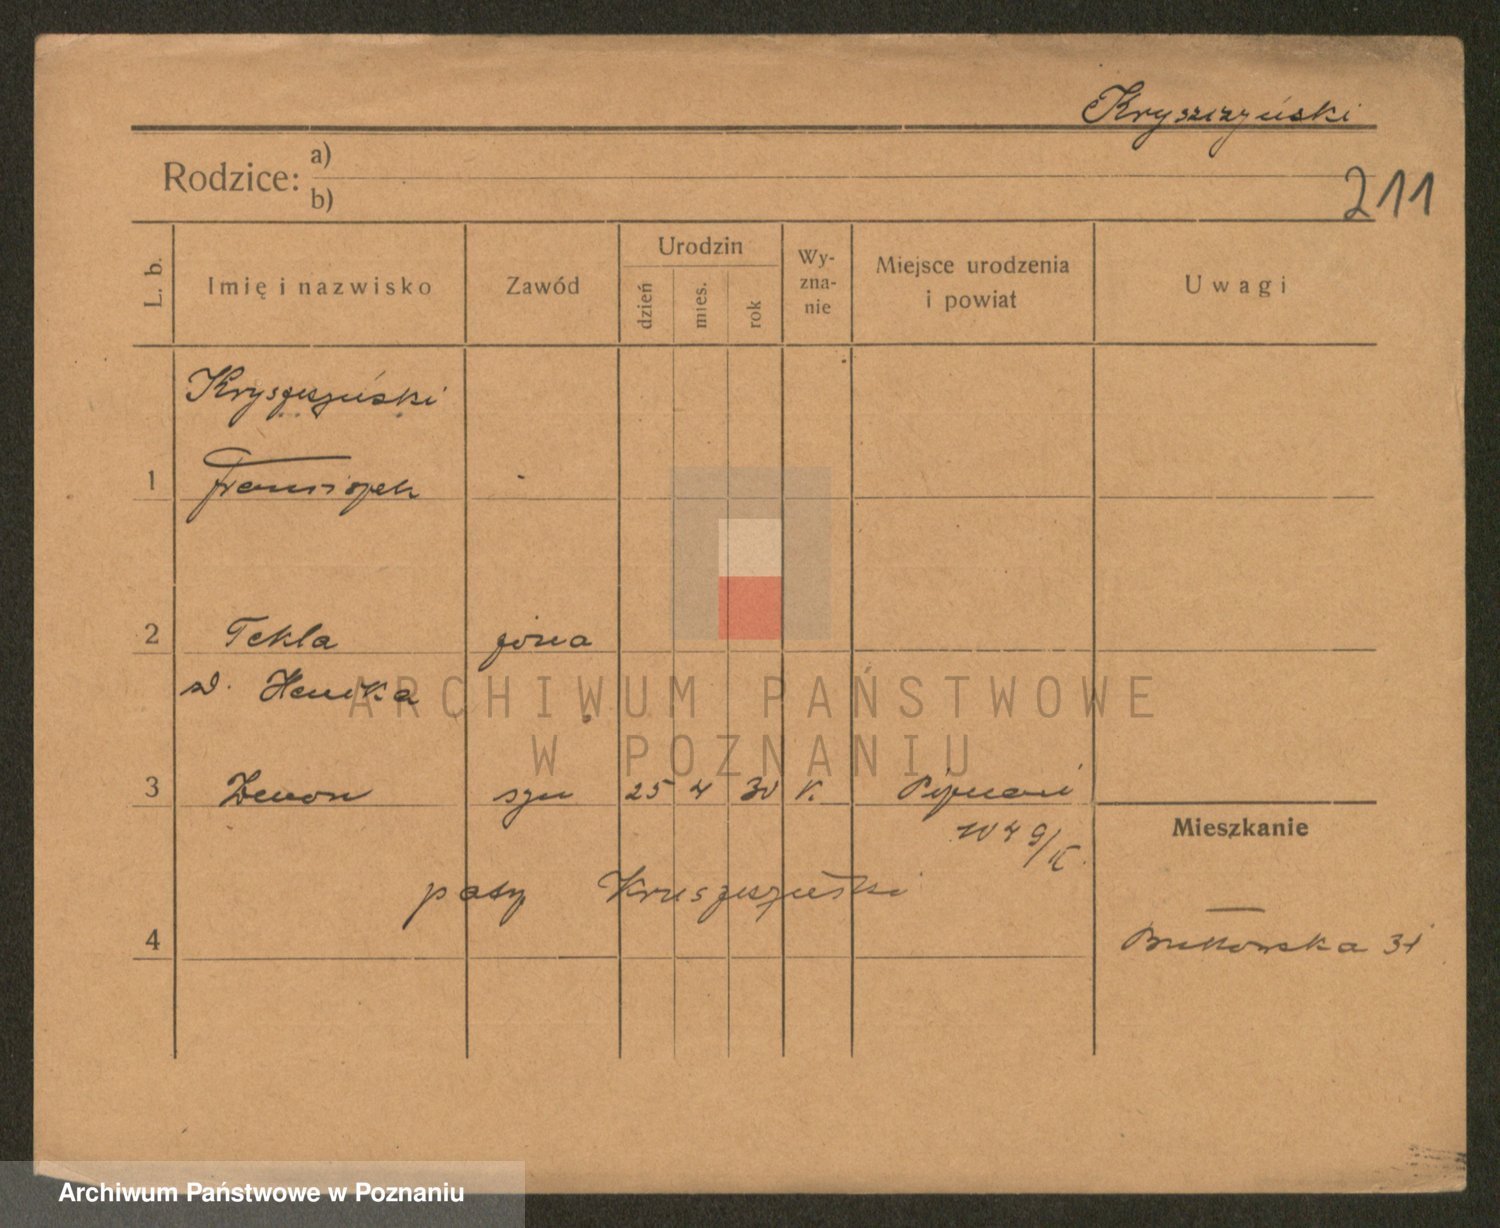 Kryszczyński
Rodzice: a)
b)
211
L. b.
Imię i nazwisko
Zawód
Urodzin
dzień
mies.
rok
Wy-
zna-
nie
Miejsce urodzenia
i powiat
Uwagi
Kryszczyński
1 Franciszek
2 Tekla żona
d.
3 Zenon syn 25 4 30 k. Poznań
Mieszkanie
patrz Kruszczyński
4
Bukowska 31
ARCHIWUM PAŃSTWOWE
W POZNANIU
Archiwum Państwowe w Poznaniu